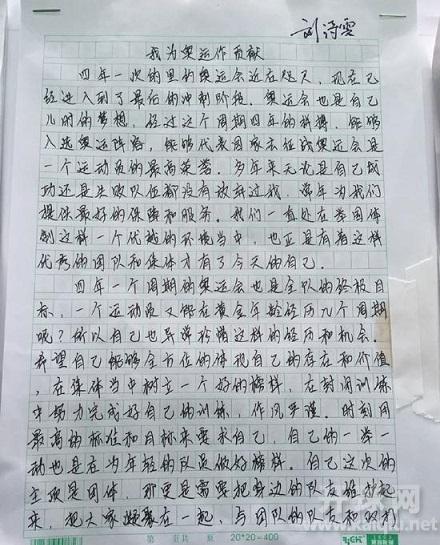 刘诗雯
我为奥运作贡献
四年一次的里约奥运会近在咫尺，现在已
经进入到了最后的冲刺阶段。奥运会也是自己
儿时的梦想，经过这个周期四年的拼搏，能够
入选奥运阵容，能够代表国家去征战奥运会是
一个运动员的最高荣誉。多年来无论是自己成
功还是失败队伍都没有放弃过我，常年为我们
提供最好的保障和服务。我们一直处在举国体
制这样一个优越的环境当中，也正是有着这样
优秀的团队和集体才有了今天的自己。
四年一个周期的奥运会也是全队的终极目
标，一个运动员又能在黄金年龄经历几个周期
呢？所以自己也非常珍惜这样的经历和机会。
希望自己能够全方位的体现自己的存在和价值
，在集体当中树立一个好的榜样，在封闭训练
中努力完成好自己的训练，作风严谨。时刻用
最高的标准和目标来要求自己，自己的一举一
动也是在为年轻的队员做好榜样。自己这次的
主项是团体，那更是需要把身边的队友
来，把大家凝聚在一起，与团队的队友和教练
第 页共 页 20*20=400
www.kaiqiu.net